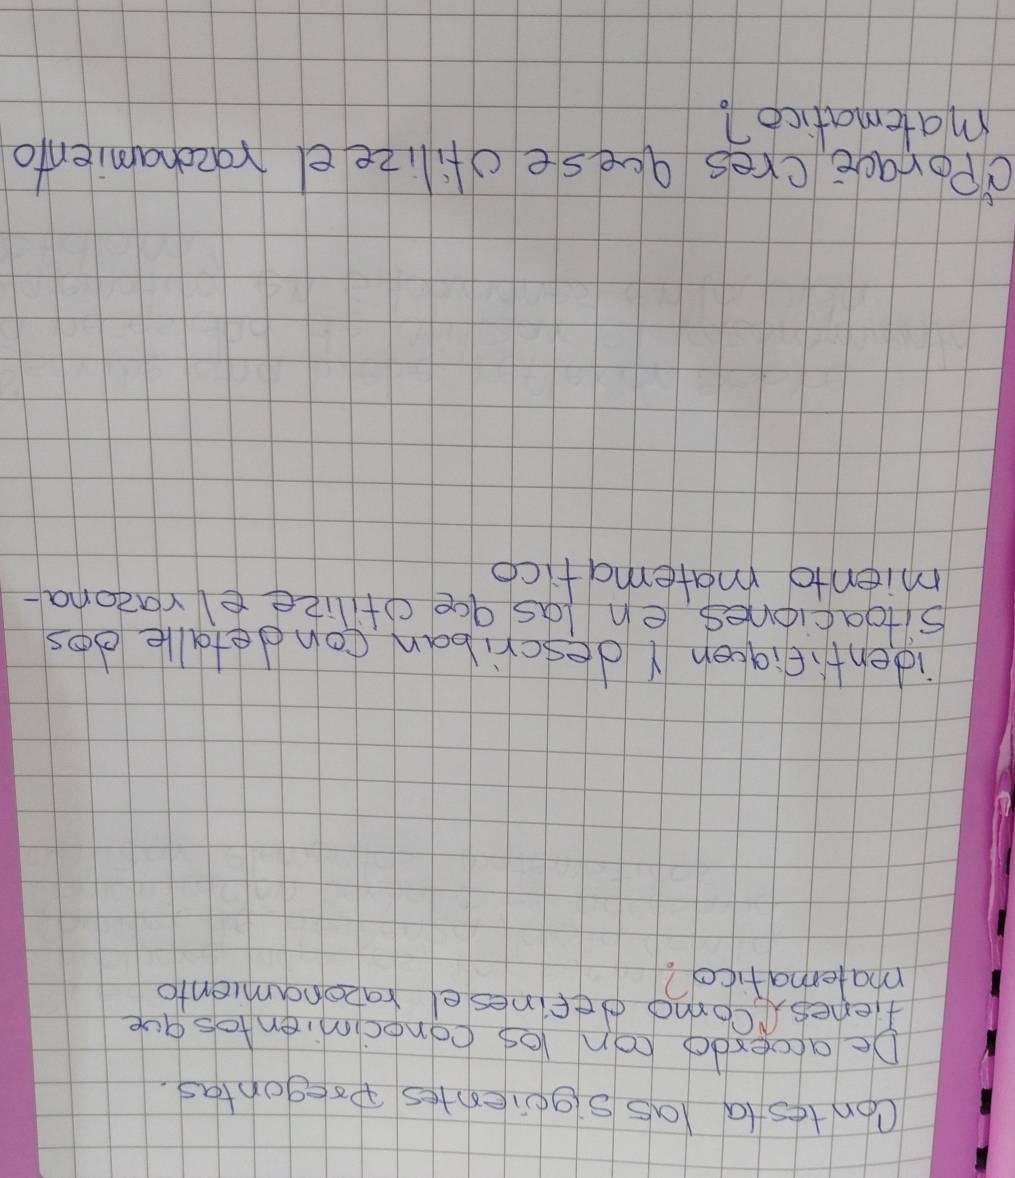 Contesta las siguientes preguntas.
De acuerdo con los conocimientos que
tienes ¿Como defines el razonamiento
matematico?
identifiquen Y describan con detalle dos
situaciones en las que utilize el razona-
miento matematico
¿Porqué cres quese utilize el razonamiento
matematico?